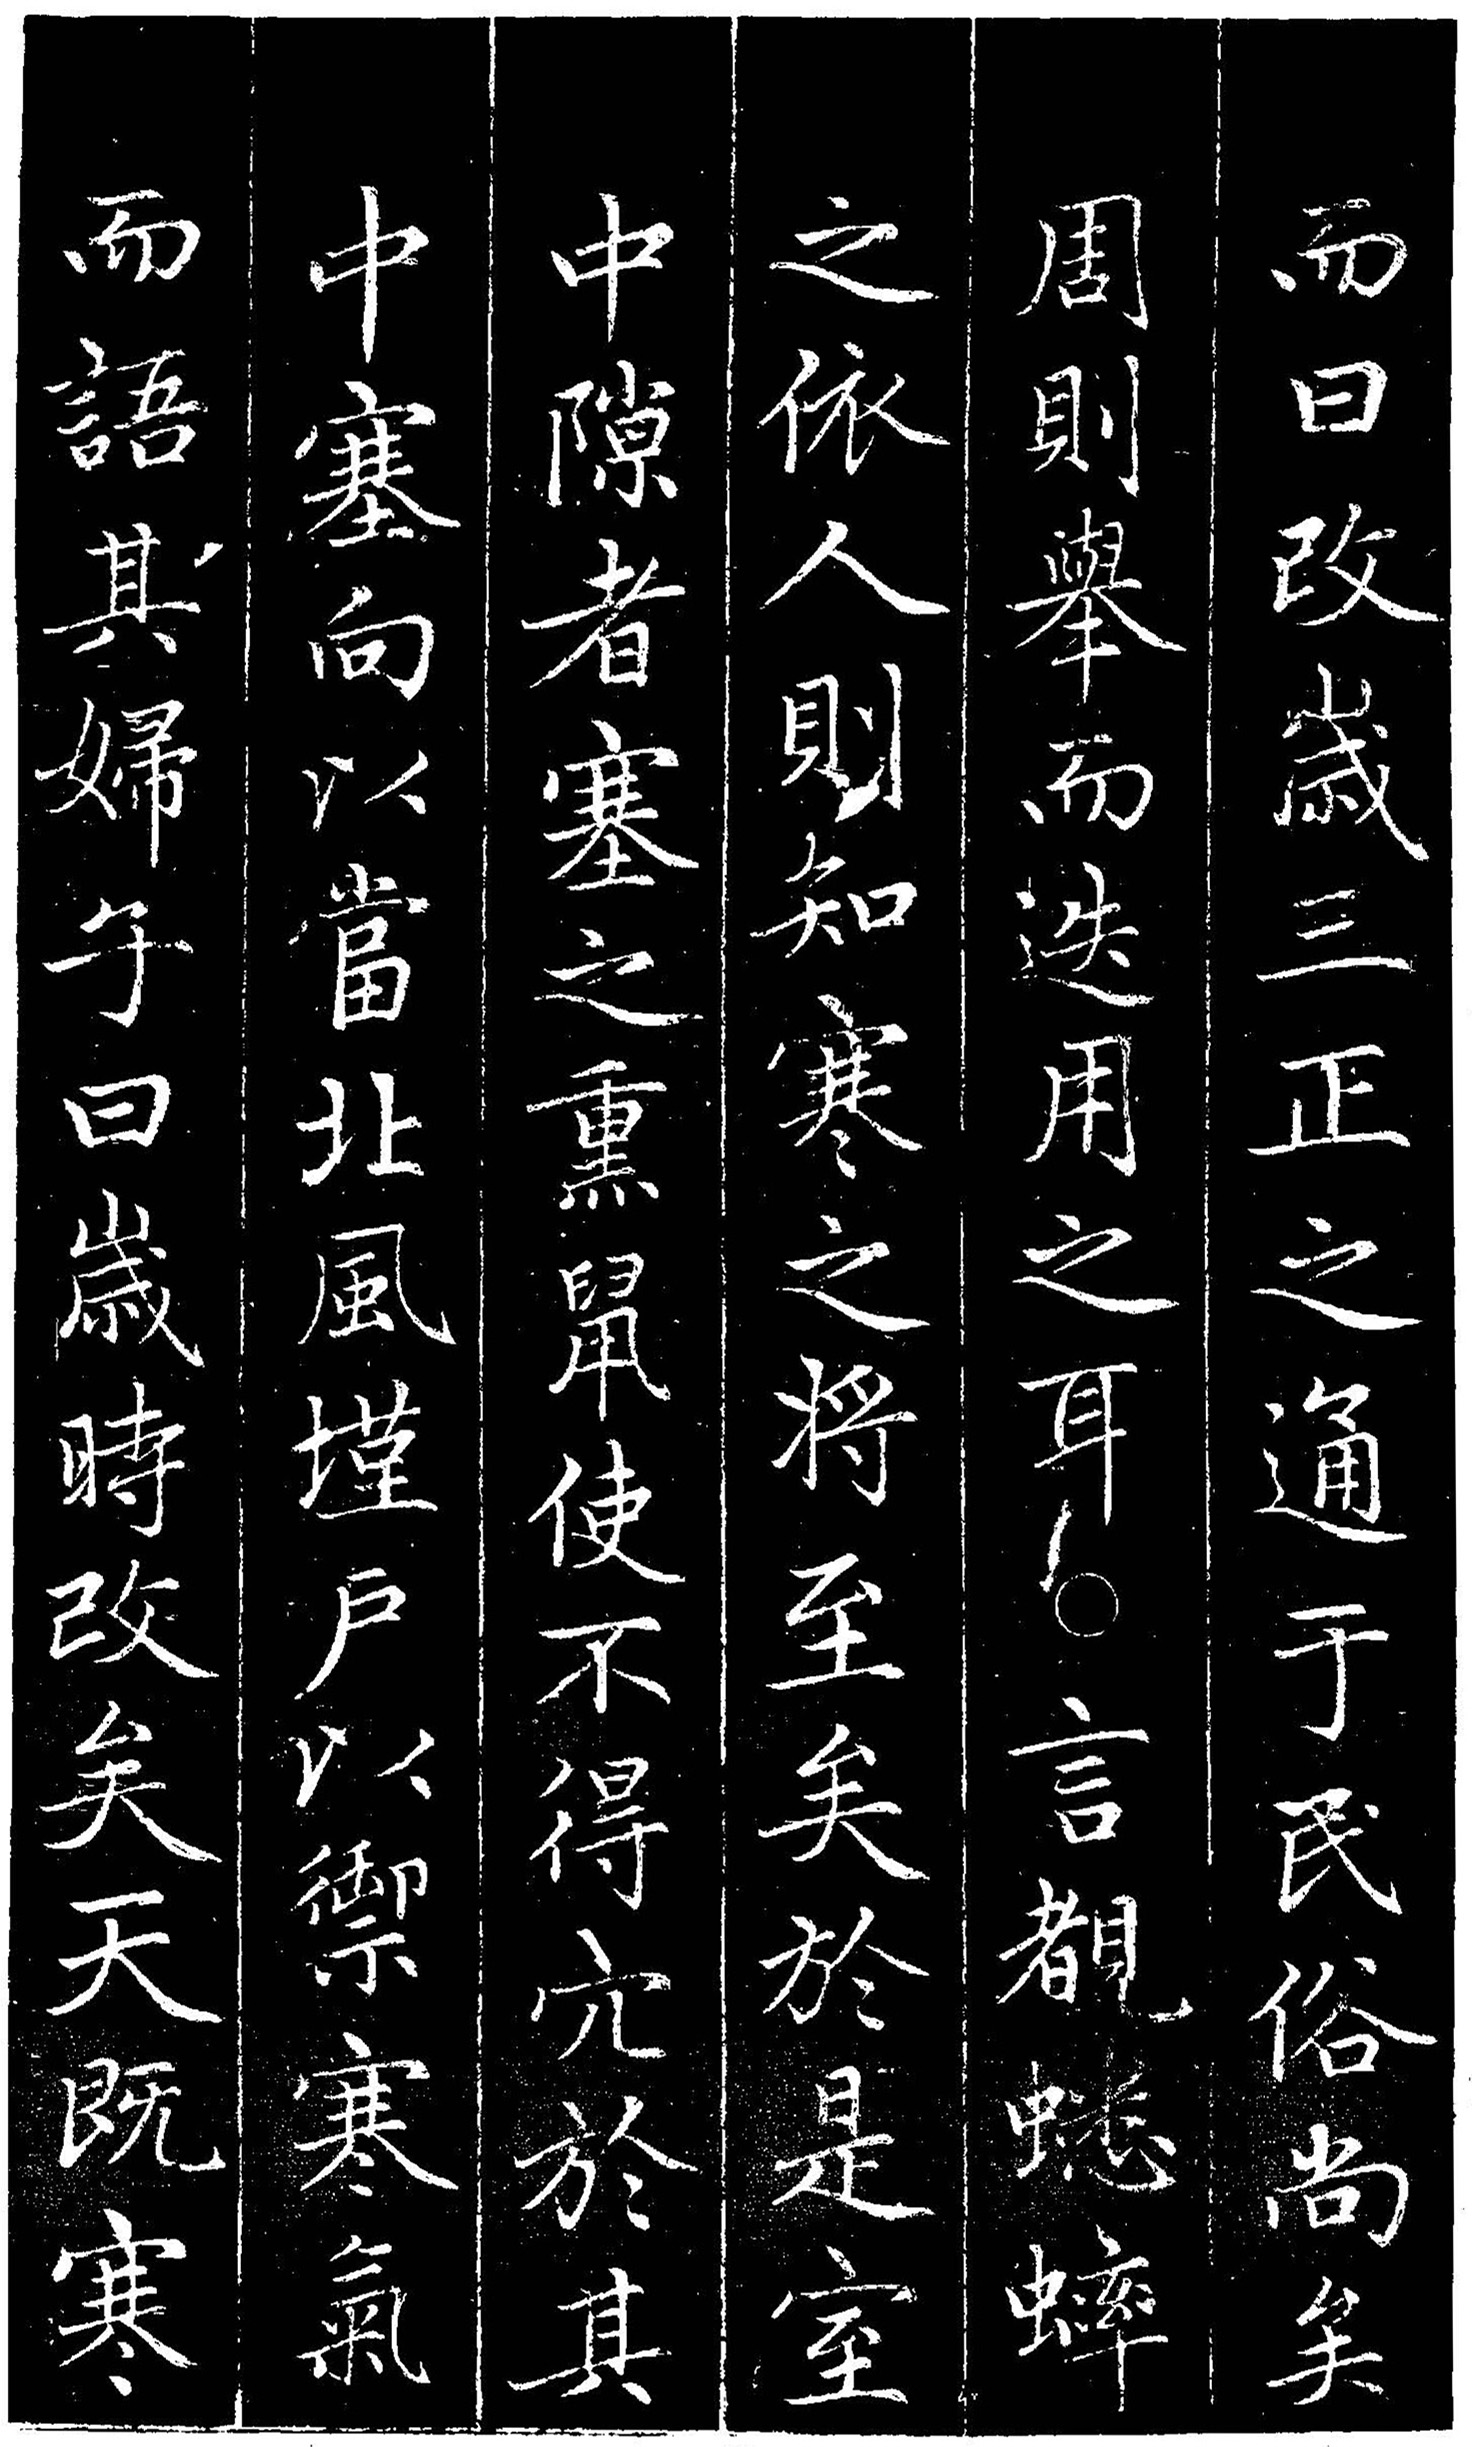 而曰改歲三正之通于民俗尚矣
周則舉而迭用之耳○言覩蟋蟀
之依人則知寒之將至矣於是室
中隙者塞之熏鼠使不得穴於其
中塞向以當北風墐戶以禦寒氣
而語其婦子曰歲時改矣天既寒